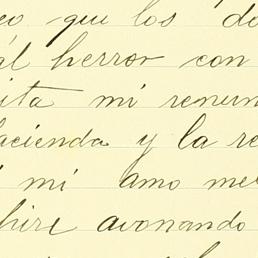 eo que los do
ál herror con
ita mi renun
acienda y la re
i mi amo me
hire avonando